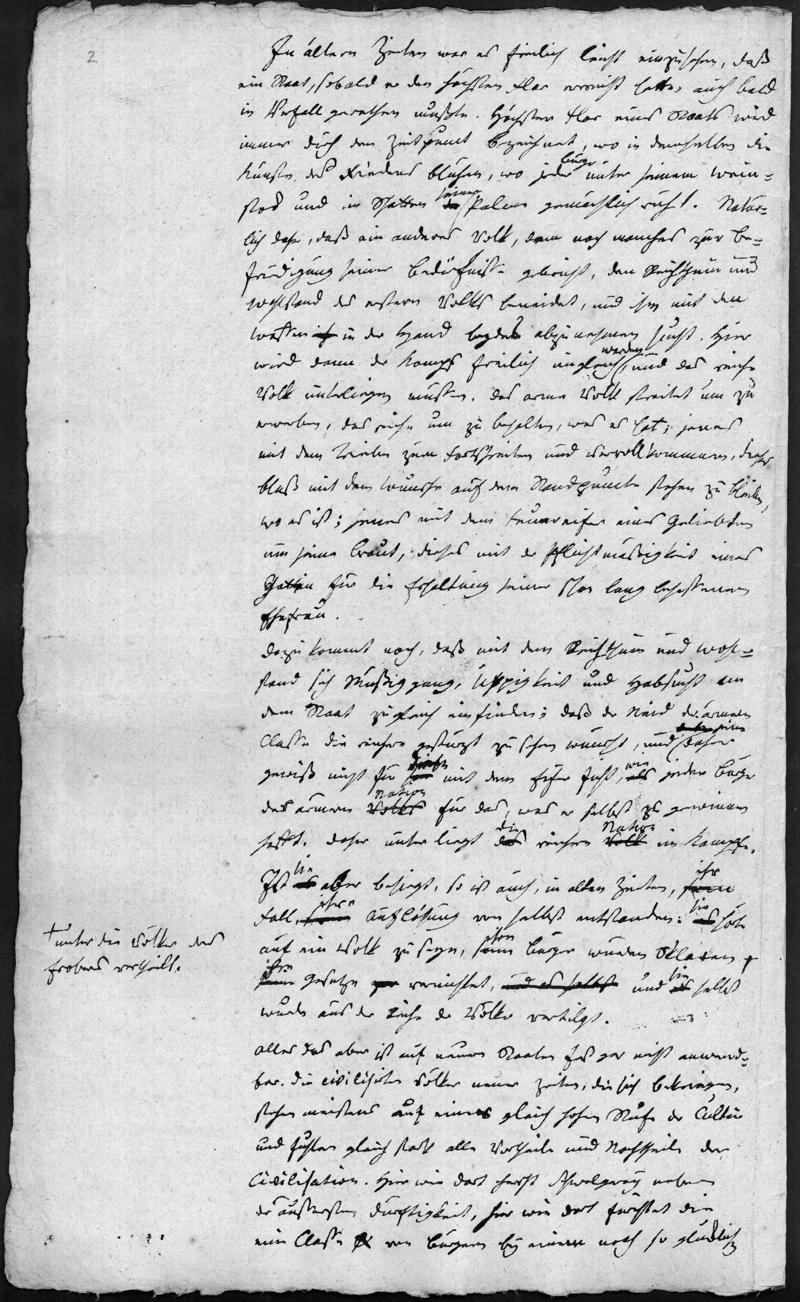 2
In ältern Zeiten war es freilich leicht einzusehen, daß
ein Staat, sobald er den höchsten Flor erreicht hatte, auch bald
in Verfall gerathen mußte. Höchster Flor eines Staats wird
immer durch den Zeitpunct bezeichnet, wo in demselben die
Künste des Friedens blühen, wo jeder Bürger unter seinem Wein-
stock und im Schatten seiner Palme gemächlich ruht. Natür-
lich daher, daß ein anderes Volk, dem noch manches zur Be-
friedigung seiner Bedürfnisse gebricht, den Reichthum und
Wohlstand des erstern Volks beneidet, und ihm mit den
Waffen in der Hand beydes abzunehmen sucht. Hier
wird dann der Kampf freilich ungleich werden, und das reiche
Volk unterliegen müssen. das arme Volk streitet um zu
erwerben, das reiche um zu behalten, was es hat; jenes
mit dem Triebe zum Fortschreiten und Vervollkommnen, dieses
bloß mit dem Wunsche auf dem Standpuncte stehen zu bleiben,
wo es ist; jenes mit dem Feuereifer eines Geliebten
um seine Braut, dieses mit der Pflichtmässigkeit eines
Gatten für die Erhaltung seiner schon lang besessenen
Ehefrau.
dazu kommt noch, daß mit dem Reichthum und Wohl-
stand sich Müssiggang, Üppigkeit und Habsucht in
dem Staat zugleich einfinden; daß der Neid der ärmern
Classe die reichere gestürzt zu sehen wünscht, und daher
gewiß nicht für diese mit dem Eifer ficht, wie jeder Bürger
der ärmern Nation für das, was er selbst zu gewinnen
hofft. daher unter liegt die reichere Nation im Kampfe.
Ist sie aber besiegt, so ist auch, in alten Zeiten, ihr
Fall, ihre Auflösung von selbst entstanden: sie hört
auf ein Volk zu seyn, ihre Bürger wurden Sklaven, †
† unter die Völker des
Erobers vertheilt.
ihre Gesetze vernichtet, und sie selbst
wurde aus der Reihe der Völker vertilgt.
alles das aber ist auf neuere Staaten fast gar nicht anwend-
bar. die civilisirten Völker neuer Zeiten, die sich bekriegen,
stehen meistens auf einer gleich hohen Stufe der Cultur
und fühlen gleich stark alle Vortheile und Nachtheile der
Civilisation. Hier wie dort herrscht Schwelgerey neben
der äussersten Dürftigkeit, hier wie dort fürchtet die
eine Classe von Bürgern bey einem noch so glücklich